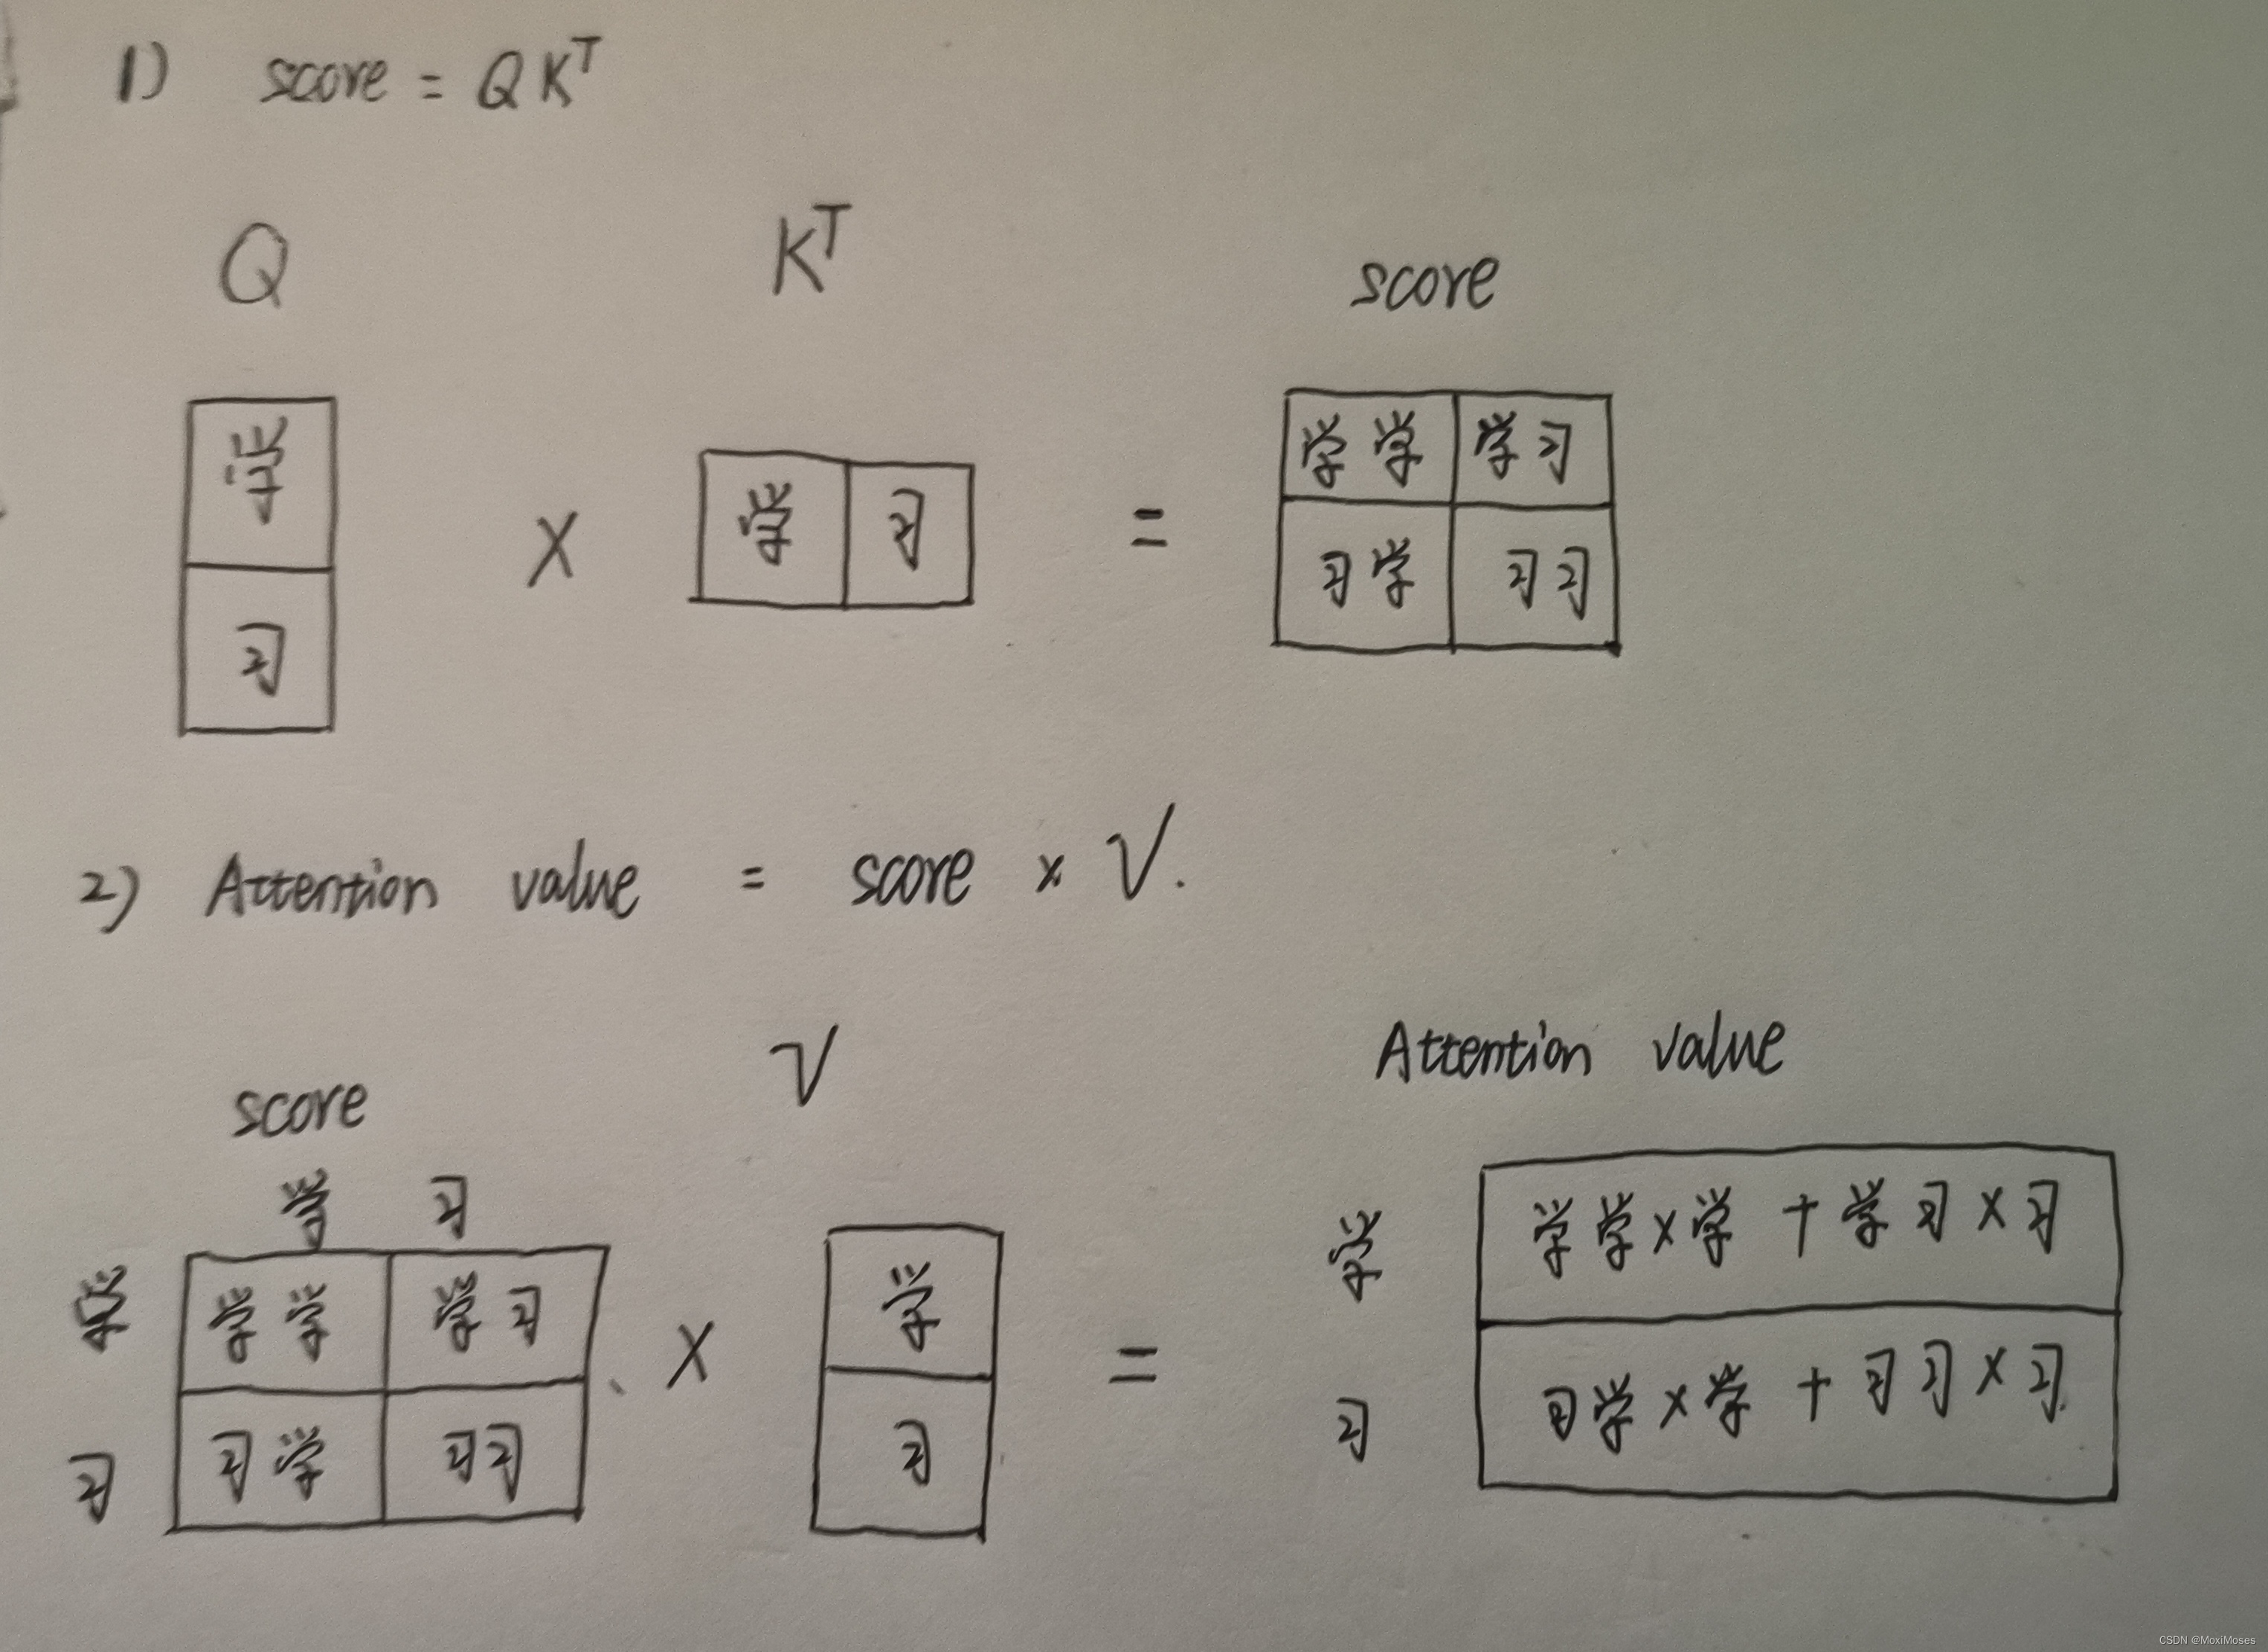 1) score = QKᵀ
Q Kᵀ score
学 学 习 学学 学习
习 × = 习学 习习
2) Attention value = score × V.
score V Attention value
学 习
学 学学 学习 × 学 = 学 学学×学 + 学习×习
习 习学 习习 习 习 习学×学 + 习习×习
CSDN @MoxiMoses